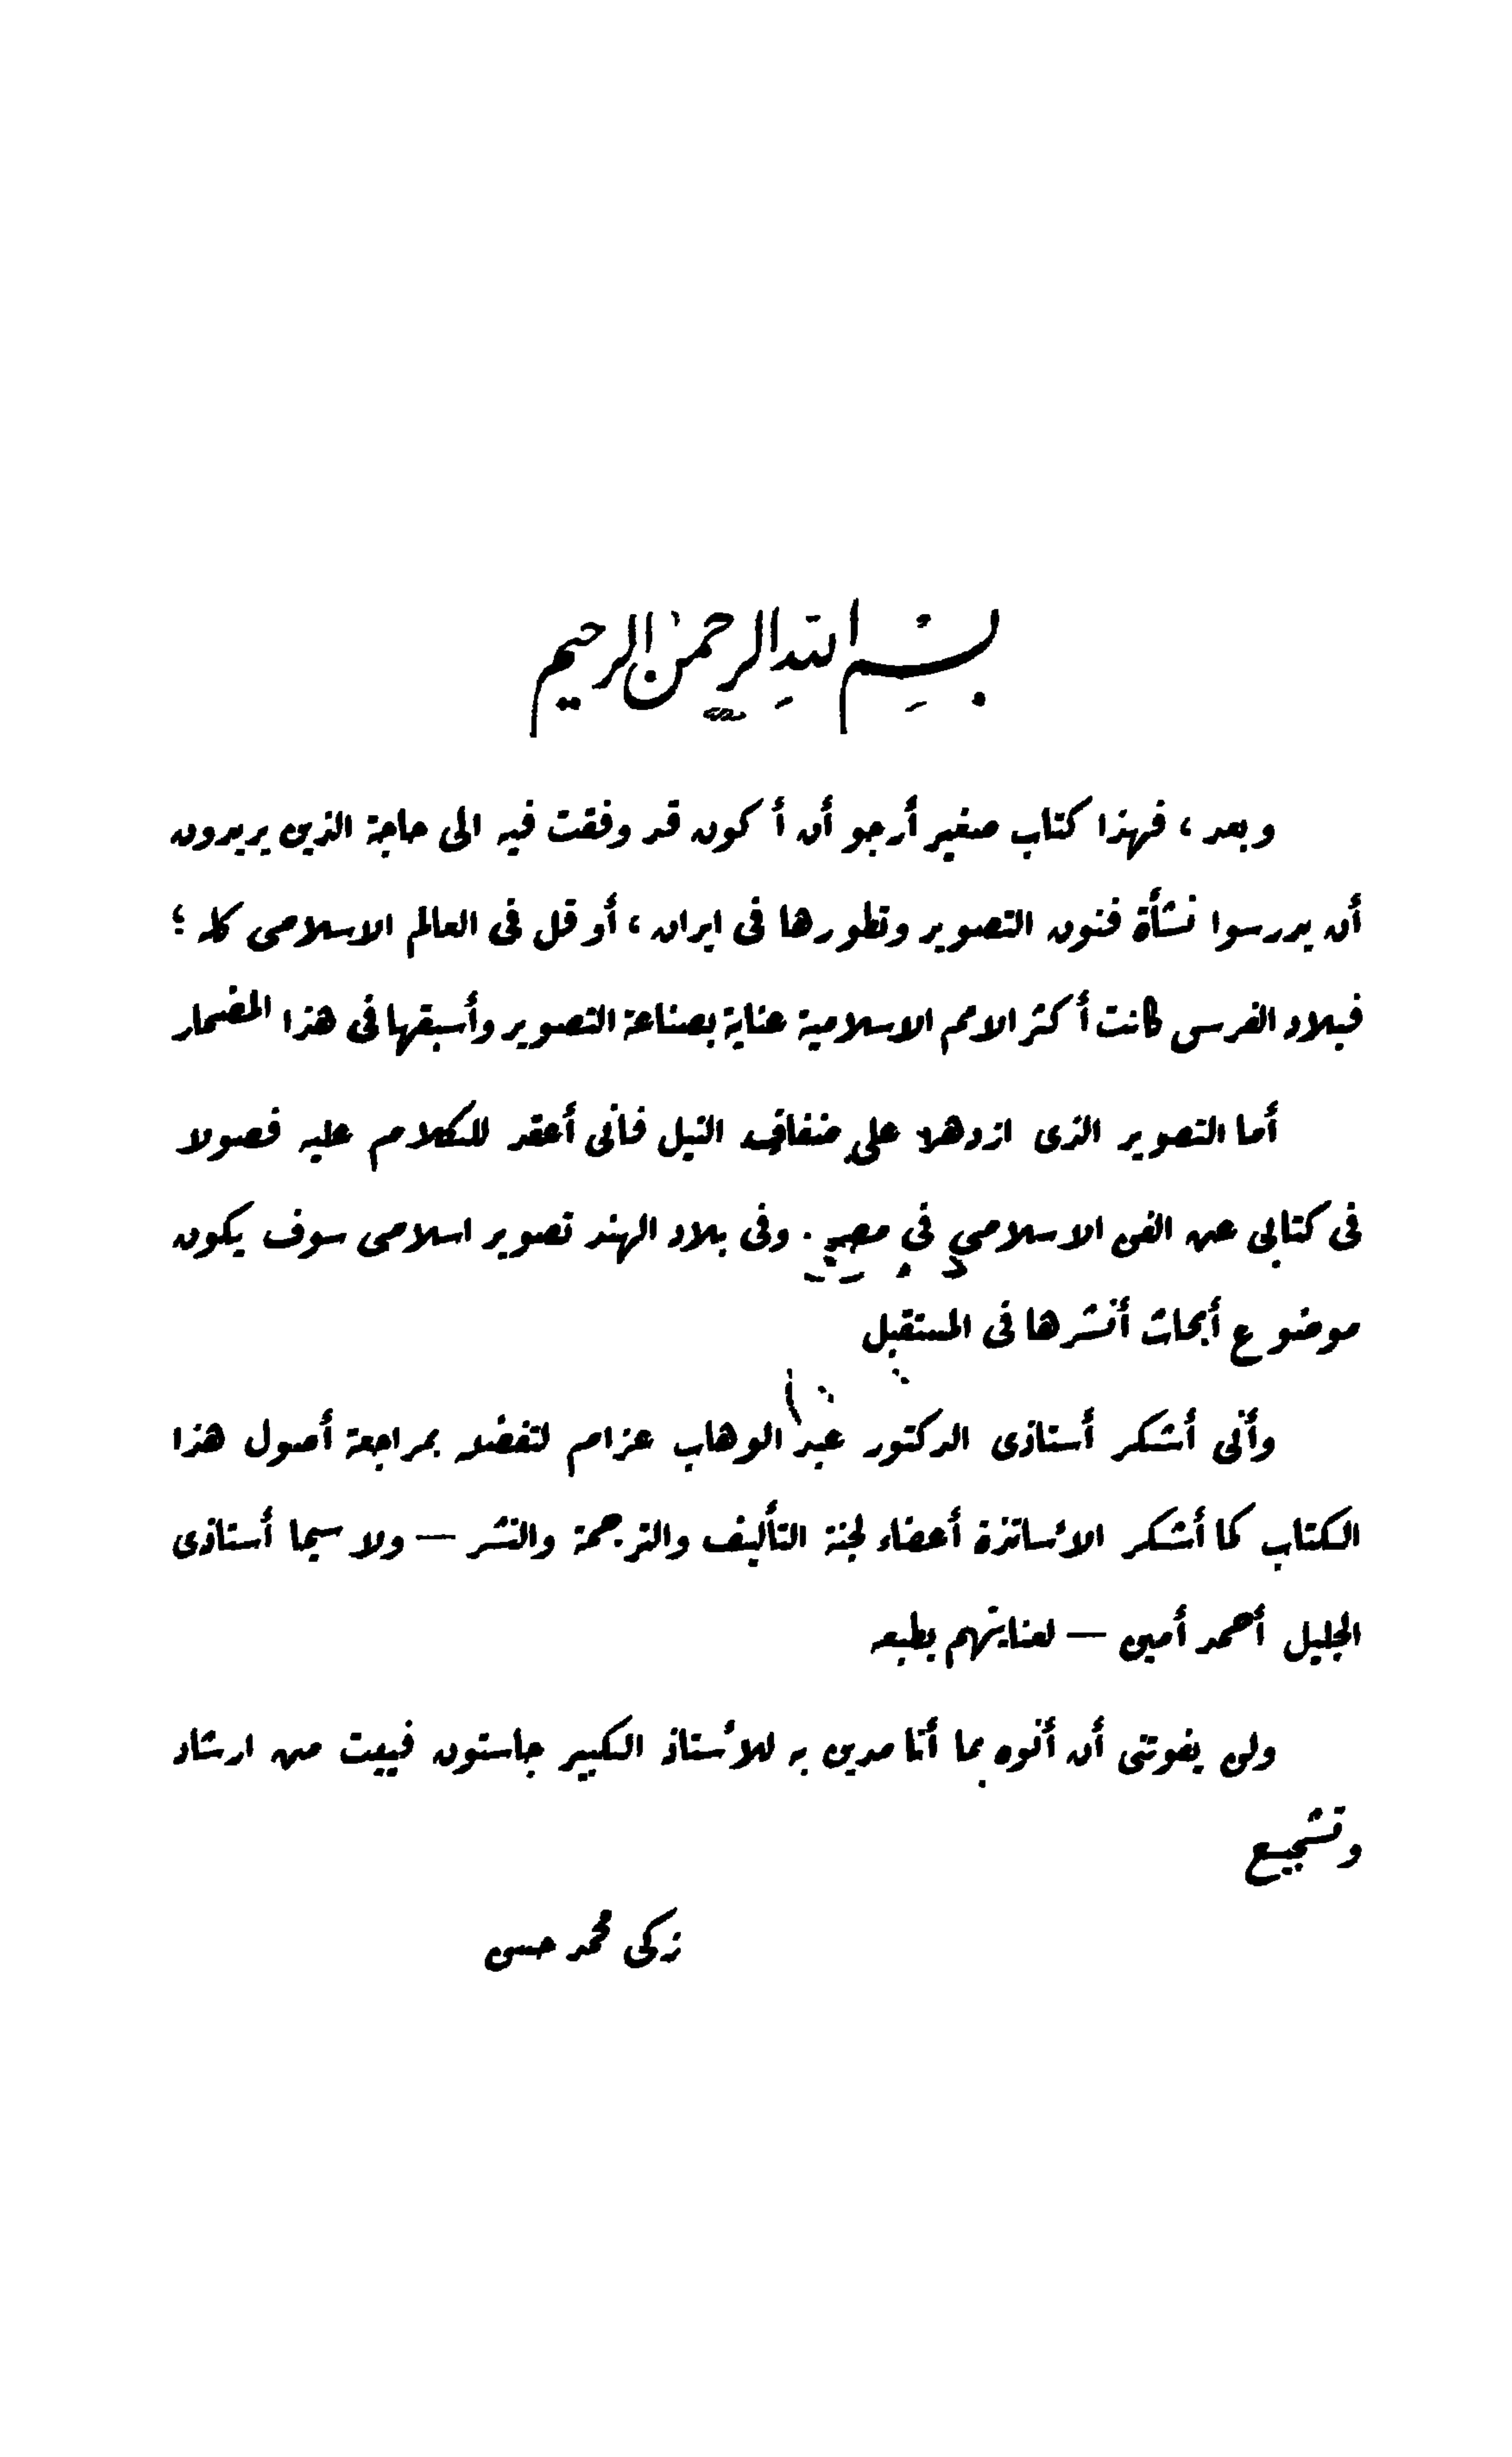 بسم الله الرحمن الرحيم
وبعد ، فهذا كتاب صغير أرجو أن أكون قد وفقت فيه الى حاجة الذين يريدون
أن يدرسوا نشأة فنون التصوير وتطورها فى ايران ، أو قل فى العالم الاسلامى كله ؛
فبلاد الفرس كانت أكثر الامم الاسلامية عناية بصناعة التصوير وأسبقها فى هذا المضمار
أما التصوير الذى ازدهر على ضفاف النيل فانى أعقد للكلام عليه فصولا
فى كتابى عن الفن الاسلامى فى مصر . وفى بلاد الهند تصوير اسلامى سوف يكون
موضوع أبحاث أنشرها فى المستقبل
وأنى أشكر أستاذى الدكتور عبد الوهاب عزام لتفضله بمراجعة أصول هذا
الكتاب كما أشكر الأساتذة أعضاء لجنة التأليف والترجمة والنشر — ولا سيما أستاذى
الجليل أحمد أمين — لعنايتهم بطبعه
ولن يفوتنى أن أنوه بما أنا مدين به للأستاذ الكبير جاستون فييت من ارشاد
وتشجيع
زكى محمد حسن